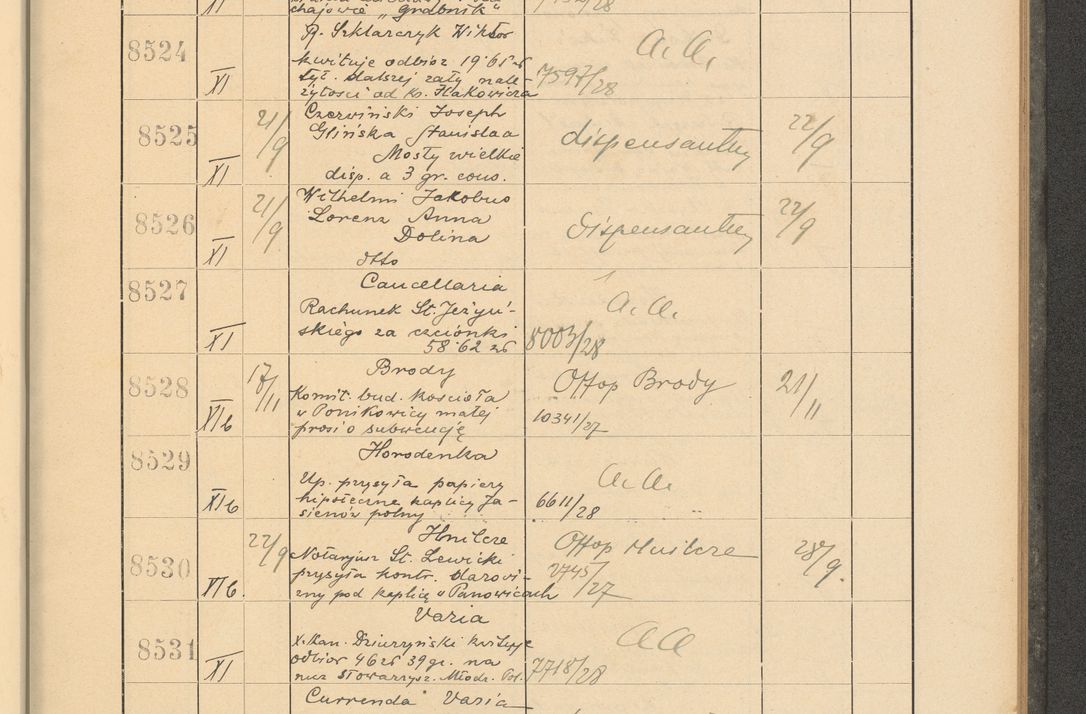 XI
chajowie „Grabnik“
8524
XI
R. Szklarczyk Wiktor
kwituje odbiór 19·65 zł
tyt. dalszej raty nale-
żytości od ks. Hakowicza
a. a.
7597/28
8525
XI
21/9
Czerwiński Joseph
Glińska Stanislaa
Mosty wielkie
disp. a 3 gr. cons.
dispensantur
22/9
8526
XI
21/9
Wilhelmi Jakobus
Lorenz Anna
Dolina
dtto
dispensantur
22/9
8527
XI
Cancellaria
Rachunek St. Jeżyń-
skiego za czcionki
58·62 zł
a. a.
8003/28
8528
XIb
17/11
Brody
Komit. bud. kościoła
w Ponikowicy małej
prosi o subwencję
Offop Brody
10341/27
21/11
8529
XIb
Horodenka
Up. przysyła papiery
hipoteczne kaplicy Ja-
sienów polny
a. a.
6611/28
8530
XIb.
22/9
Hnilcze
Notarjusz St. Lewicki
przysyła kontr. darowi-
zny pod kaplicę w Panowicach
Offop Hnilcze
2745/27
28/9.
8531
XI
Varia
X. Kan. Dziurzyński kwituje
odbiór 46 zł 39 gr. na
rzecz Stowarzysz. Młodz. Pol.
a a
7718/28
Currenda Varia